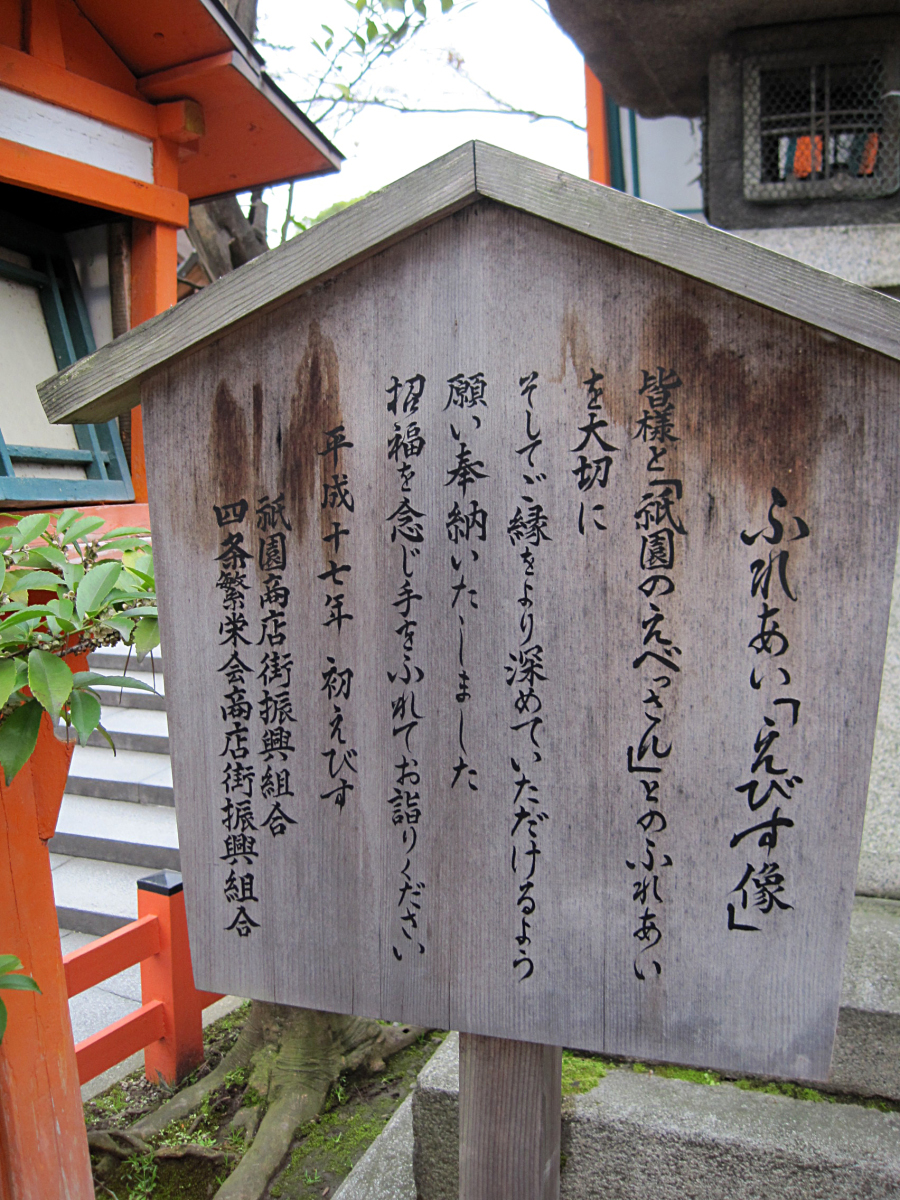 ふれあい「えびす像」
皆様と「祇園のえべっさん」とのふれあい
を大切に
そしてご縁をより深めていただけるよう
願い奉納いたしました
招福を念じ手をふれてお詣りください
平成十七年 初えびす
祇園商店街振興組合
四条繁栄会商店街振興組合